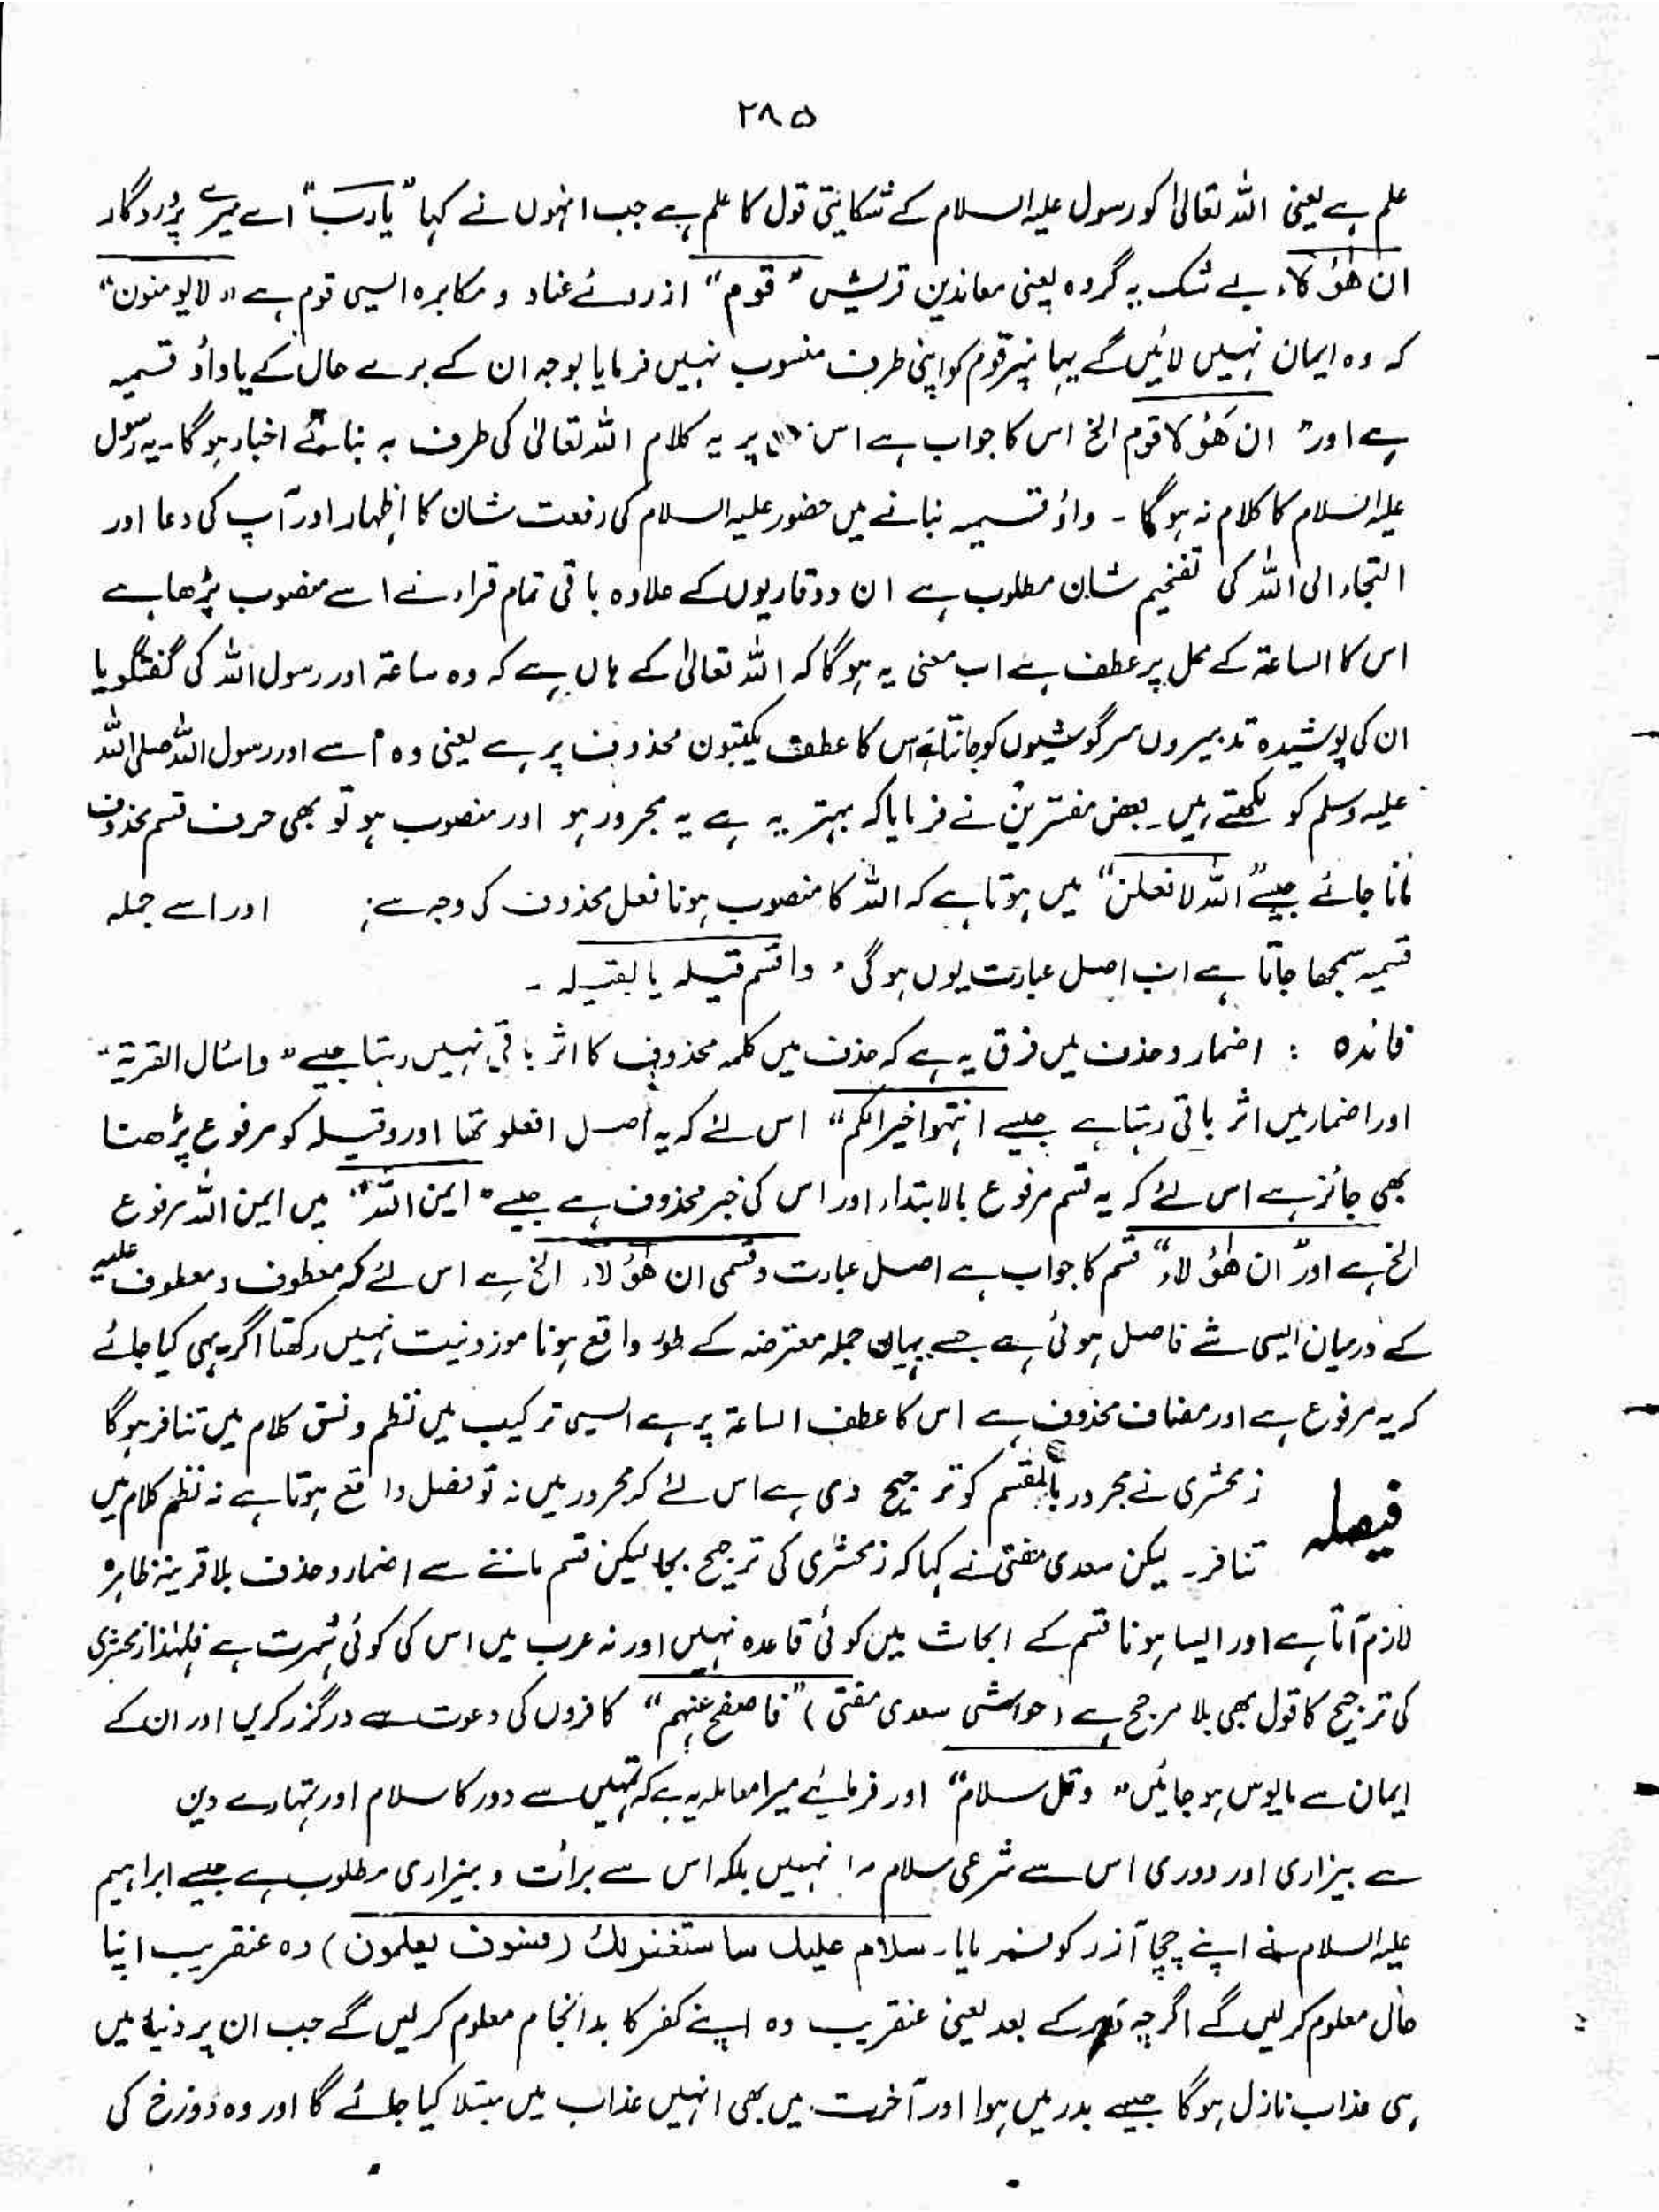 ۲۸۵
علم ہے یعنی اللہ تعالیٰ کو رسول علیہ السلام کے شکایتی قول کا علم ہے جب انہوں نے کہا "یارب" اے میرے پروردگار
ان ھٰؤلاء بے شک یہ گروہ یعنی معاندین قریش "قوم" ازروئے عناد و مکابرہ ایسی قوم ہے "لایومنون"
کہ وہ ایمان نہیں لائیں گے یہا نپر قوم کو اپنی طرف منسوب نہیں فرمایا بوجہ ان کے برے حال کے یا واؤ قسمیہ
ہے اور" ان ھٰؤلا قوم الخ اس کا جواب ہے اس پر یہ کلام اللہ تعالیٰ کی طرف بہ بنائے اخبار ہوگا۔ یہ رسول
علیہ السلام کا کلام نہ ہوگا ۔ واؤ قسمیہ بنانے میں حضور علیہ السلام کی رفعت شان کا اظہار اور آپ کی دعا اور
التجاء الی اللہ کی تفخیم شان مطلوب ہے ان دو قاریوں کے علاوہ باقی تمام قراء نے اسے منصوب پڑھا ہے
اس کا الساعۃ کے محل پر عطف ہے اب معنی یہ ہوگا کہ اللہ تعالیٰ کے ہاں ہے کہ وہ ساعۃ اور رسول اللہ کی گفتگو یا
ان کی پوشیدہ تدبیروں سرگوشیوں کو جانتا ہے اس کا عطف یکتبون محذوف پر ہے یعنی وہ اسے اور رسول اللہ صلی اللہ
علیہ وسلم کو لکھتے ہیں۔ بعض مفسرین نے فرمایا کہ بہتر یہ ہے یہ مجرور ہو اور منصوب ہو تو بھی حرف قسم محذوف
مانا جائے جیسے "اللہ لافعلن" میں ہوتا ہے کہ اللہ کا منصوب ہونا فعل محذوف کی وجہ سے ہے اور اسے جملہ
قسمیہ سمجھا جاتا ہے اب اصل عبارت یوں ہوگی " واقسم قیلہ یا بقیلہ ۔
فائدہ : اضمار و حذف میں فرق یہ ہے کہ حذف میں کلمہ محذوف کا اثر باقی نہیں رہتا جیسے "واسئال القریۃ"
اور اضمار میں اثر باقی رہتا ہے جیسے انتہوا خیرا لکم" اس لئے کہ یہ اصل افعلو تھا اور وقیلہ کو مرفوع پڑھنا
بھی جائز ہے اس لئے کہ یہ قسم مرفوع بالابتداء اور اس کی خبر محذوف ہے جیسے "ایمن اللہ" میں ایمن اللہ مرفوع
الخ ہے اور" ان ھٰؤلاء" قسم کا جواب ہے اصل عبارت وقسمی ان ھٰؤلاء الخ ہے اس لئے کہ معطوف و معطوف علیہ
کے درمیان ایسی شے فاصل ہوئی ہے جسے یہاں جملہ معترضہ کے طور واقع ہونا موزونیت نہیں رکھتا اگر یہی کیا جائے
کہ یہ مرفوع ہے اور مضاف محذوف ہے اس کا عطف الساعۃ پر ہے ایسی ترکیب میں نظم و نسق کلام میں تنافر ہوگا
فیصلہ زمخشری نے مجرور بالمقسم کو ترجیح دی ہے اس لئے کہ مجرور میں نہ تو فصل واقع ہوتا ہے نہ نظم کلام میں
تنافر۔ لیکن سعدی مفتی نے کہا کہ زمخشری کی ترجیح بجا لیکن قسم ماننے سے اضمار و حذف بلا قرینہ ظاہرہ
لازم آتا ہے اور ایسا ہونا قسم کے ابحاث میں کوئی قاعدہ نہیں اور نہ عرب میں اس کی کوئی شہرت ہے فلہٰذا زمحشری
کی ترجیح کا قول بھی بلا مرجح ہے (حواشی سعدی مفتی) "فاصفح عنہم" کافروں کی دعوت سے درگزر کریں اور ان کے
ایمان سے مایوس ہو جائیں" وقل سلام" اور فرمائیے میرا معاملہ یہ ہے کہ تمہیں سے دور کا سلام اور تمہارے دین
سے بیزاری اور دوری اس سے شرعی سلام نہیں بلکہ اس سے برأت و بیزاری مطلوب ہے جیسے ابراہیم
علیہ السلام نے اپنے چچا آزر کو فرمایا۔ سلام علیک ساستغفرلک (فسوف یعلمون) وہ عنقریب اپنا
حال معلوم کر لیں گے اگرچہ کے بعد یعنی عنقریب وہ اپنے کفر کا بد انجام معلوم کر لیں گے جب ان پر دنیا میں
ہی عذاب نازل ہوگا جیسے بدر میں ہوا اور آخرت میں بھی انہیں عذاب میں مبتلا کیا جائے گا اور وہ دوزخ کی